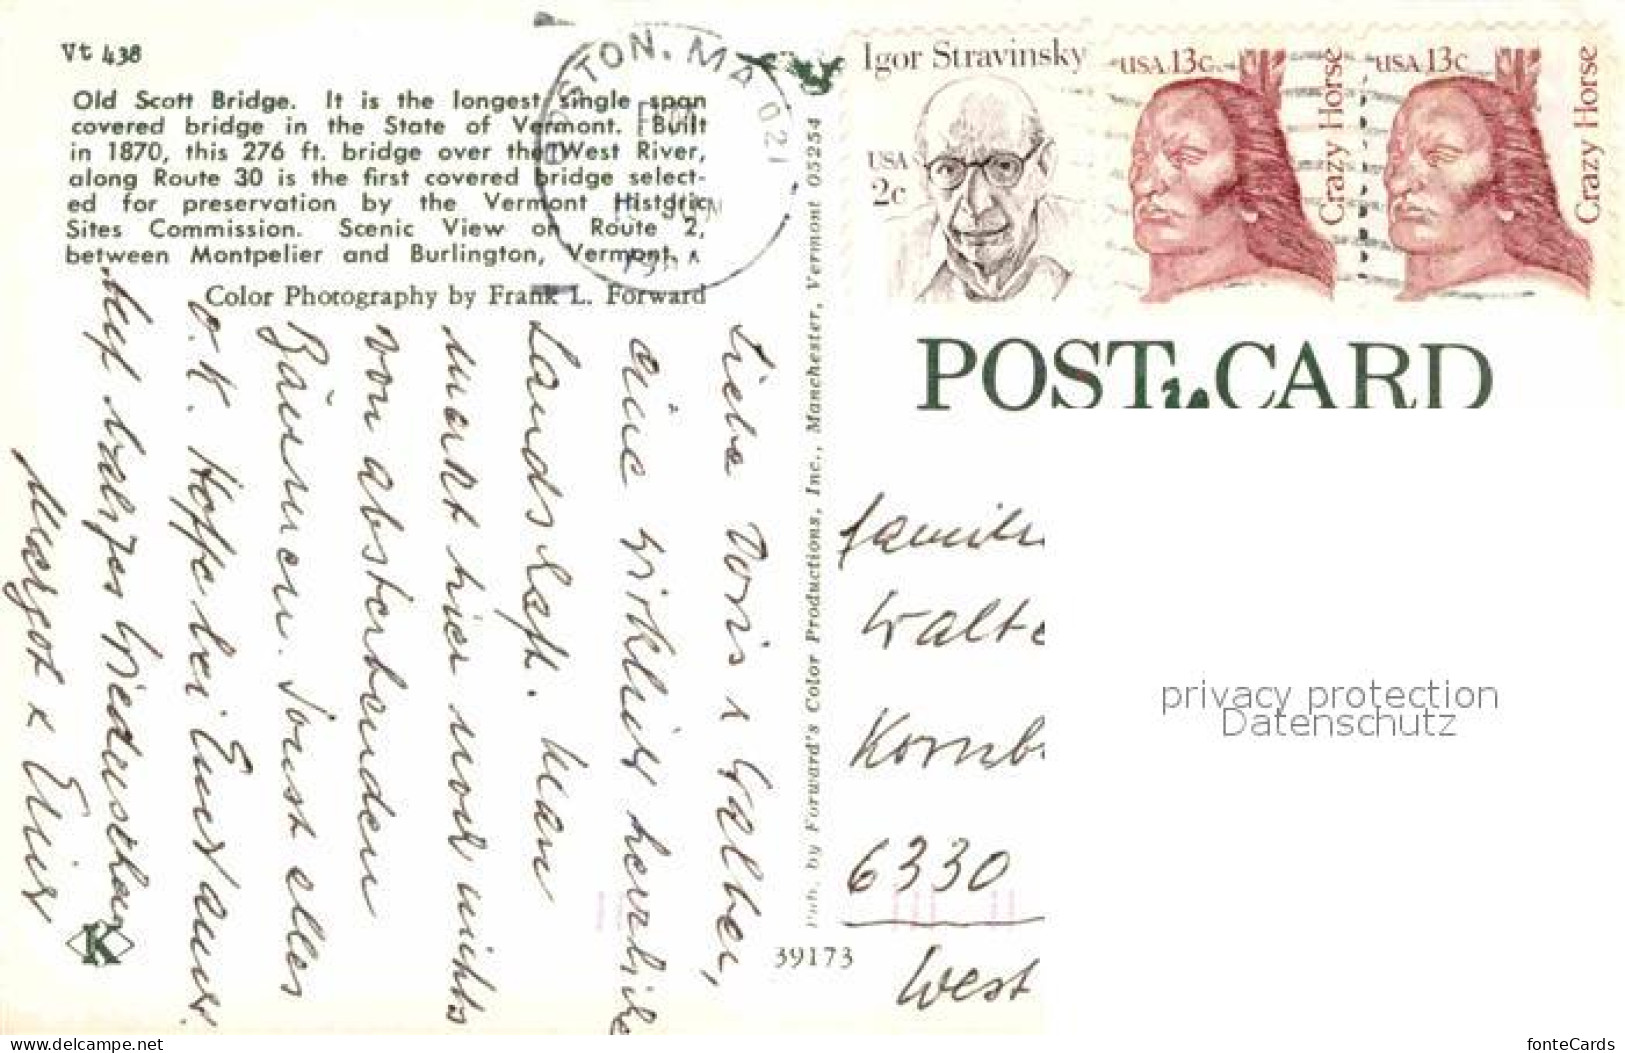 Vt 438
Old Scott Bridge. It is the longest single span
covered bridge in the State of Vermont. Built
in 1870, this 276 ft. bridge over the West River,
along Route 30 is the first covered bridge select-
ed for preservation by the Vermont Historic
Sites Commission. Scenic View on Route 2,
between Montpelier and Burlington, Vermont.
Color Photography by Frank L. Forward
BOSTON, MA 021
Igor Stravinsky
USA
2c
USA 13c
Crazy Horse
USA 13c
Crazy Horse
POST CARD
Liebe Doris & Walter,
eine wirklich herrliche
Landschaft. Man
merkt hier noch nichts
von absterbenden
Bäumen. Sonst alles
o.K. Hoffe bei Euch auch.
Auf baldiges Wiedersehen
Margot &
Pub. by Forward's Color Productions, Inc., Manchester, Vermont 05254
39173
K
Famili
Walte
Kornb
6330
West
privacy protection
Datenschutz
www.delcampe.net
fonteCards